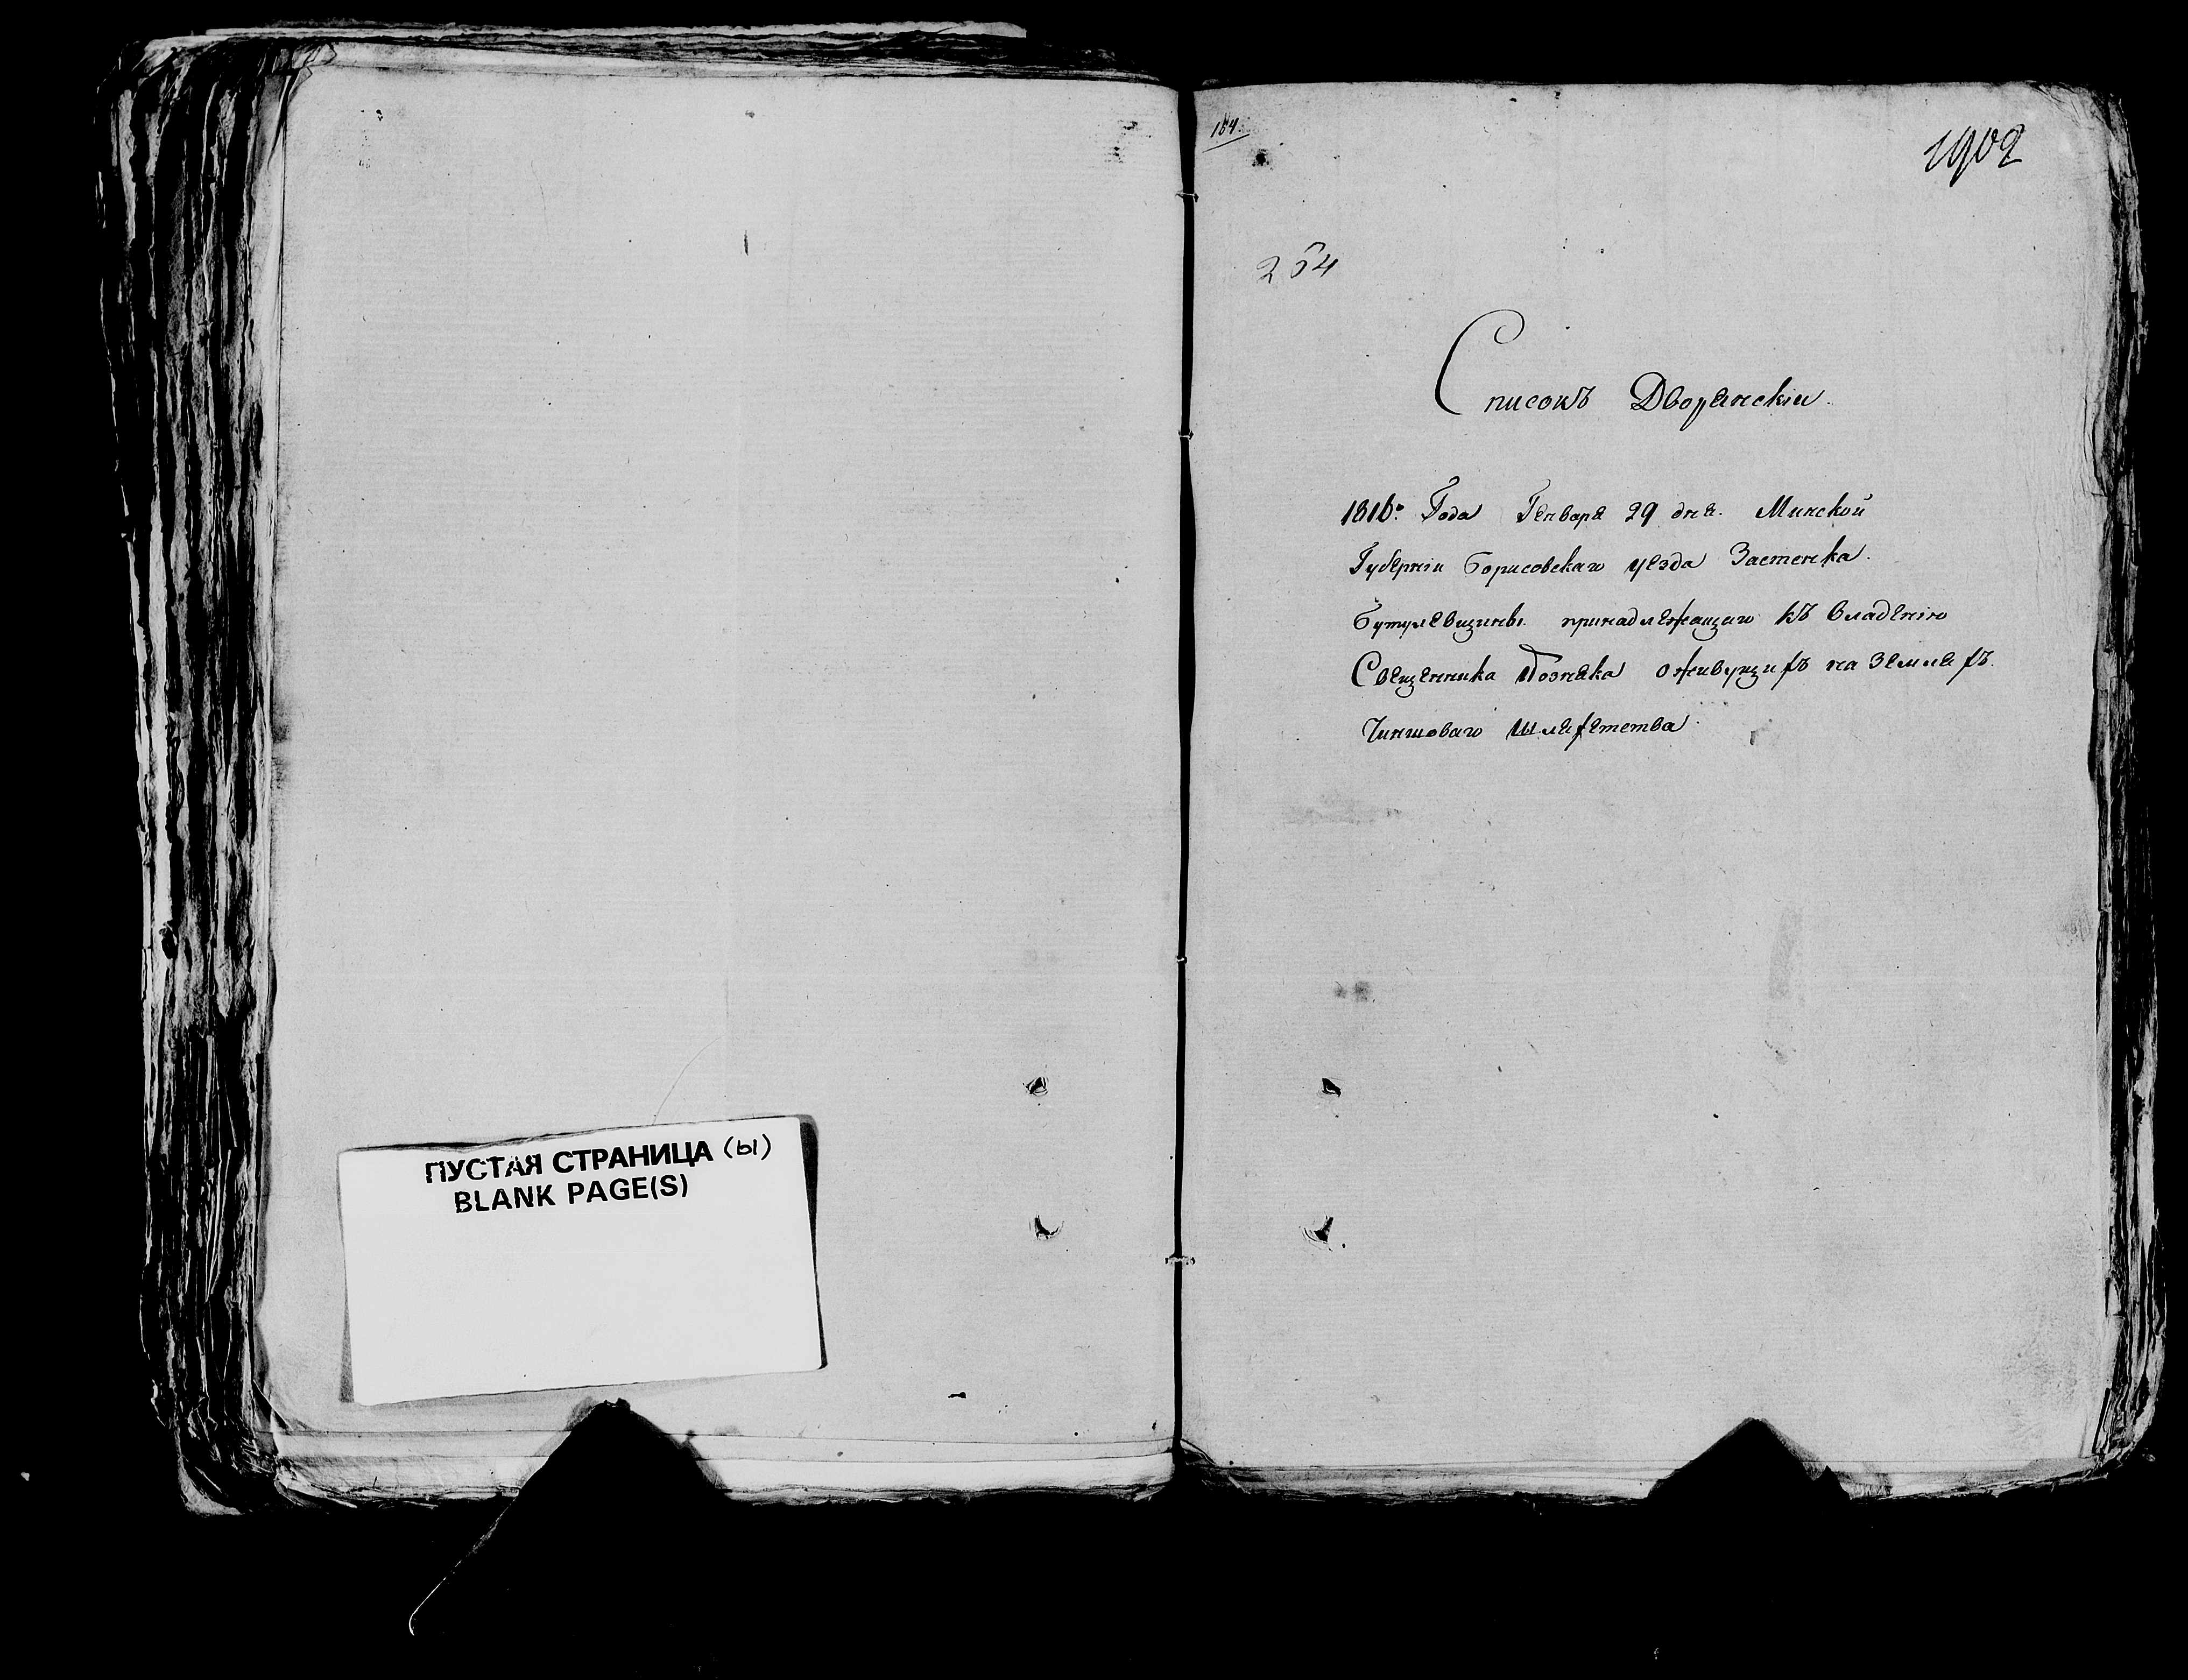 ПУСТАЯ СТРАНИЦА (ы)
BLANK PAGE(S)
184.
1902
254
Списокъ Дворянскіи.
1816го Года Генваря 29 дня. Минской
Губерніи Борисовскаго уезда Застенка.
Бутулевщизны принадлежащаго къ владенію
Свещенника Позняка оживущихъ на землях.
Чиншоваго шляхетства.